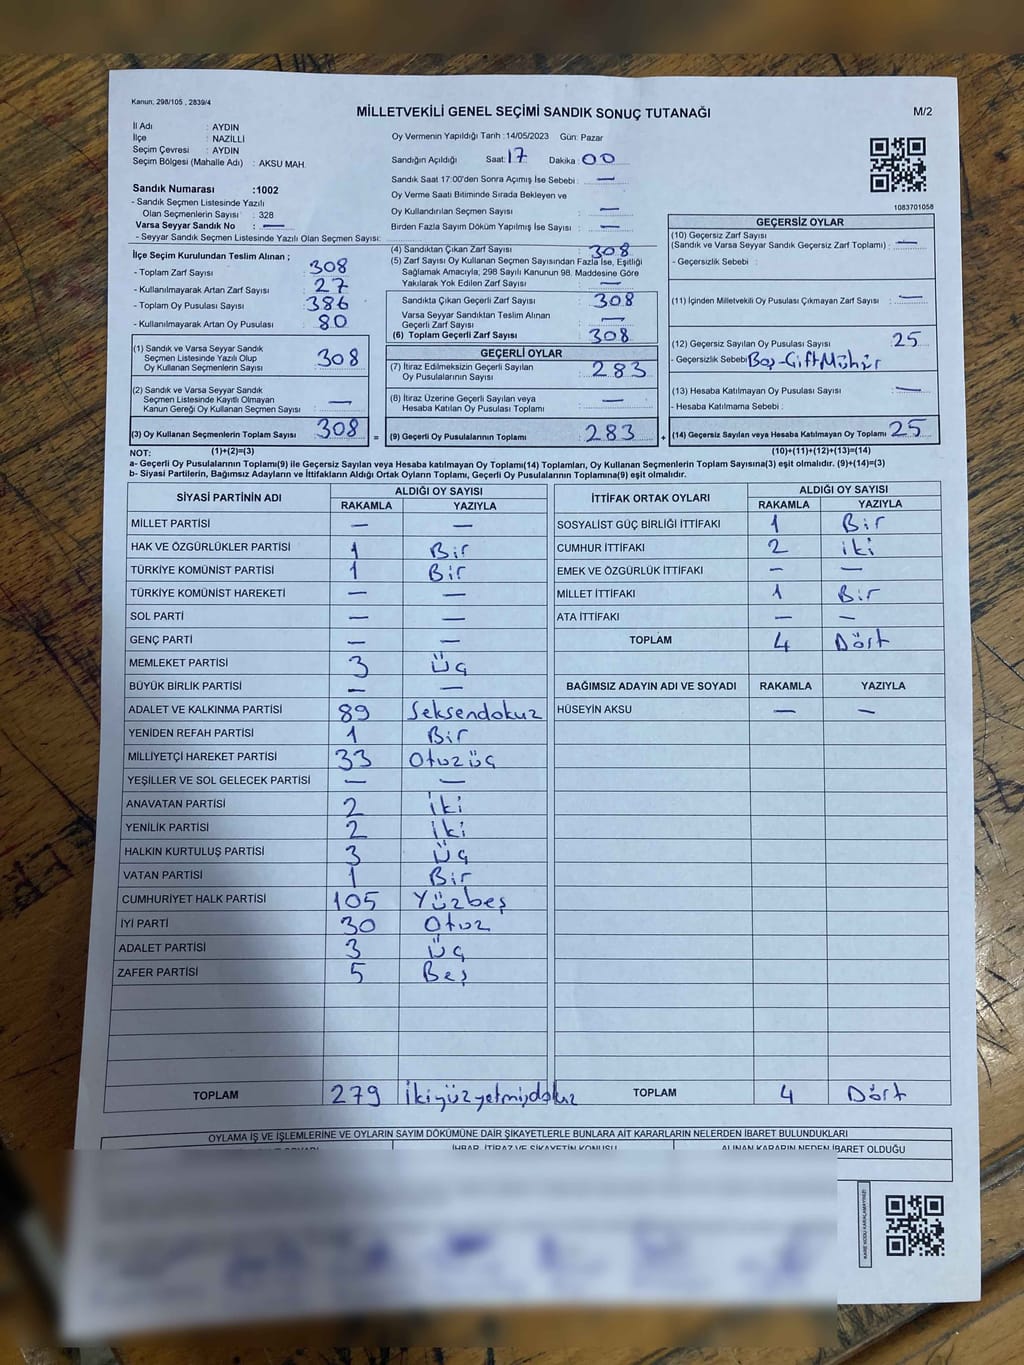 Kanun, 298/105 , 2839/4
MİLLETVEKİLİ GENEL SEÇİMİ SANDIK SONUÇ TUTANAĞI
M/2
İl Adı : AYDIN
İlçe : NAZİLLİ
Seçim Çevresi : AYDIN
Seçim Bölgesi (Mahalle Adı) : AKSU MAH.
Sandık Numarası :1002
- Sandık Seçmen Listesinde Yazılı
Olan Seçmenlerin Sayısı : 328
Varsa Seyyar Sandık No : —
- Seyyar Sandık Seçmen Listesinde Yazılı Olan Seçmen Sayısı:
Oy Vermenin Yapıldığı Tarih :14/05/2023 Gün: Pazar
Sandığın Açıldığı Saat: 17 Dakika: 00
Sandık Saat 17:00'den Sonra Açımış İse Sebebi : —
Oy Verme Saati Bitiminde Sırada Bekleyen ve
Oy Kullandırılan Seçmen Sayısı : —
Birden Fazla Sayım Döküm Yapılmış İse Sayısı : —
1083701058
İlçe Seçim Kurulundan Teslim Alınan ;
- Toplam Zarf Sayısı : 308
- Kullanılmayarak Artan Zarf Sayısı : 27
- Toplam Oy Pusulası Sayısı : 386
- Kullanılmayarak Artan Oy Pusulası : 80
(1) Sandık ve Varsa Seyyar Sandık
Seçmen Listesinde Yazılı Olup
Oy Kullanan Seçmenlerin Sayısı : 308
(2) Sandık ve Varsa Seyyar Sandık
Seçmen Listesinde Kayıtlı Olmayan
Kanun Gereği Oy Kullanan Seçmen Sayısı : —
(3) Oy Kullanan Seçmenlerin Toplam Sayısı : 308
(4) Sandıktan Çıkan Zarf Sayısı : 308
(5) Zarf Sayısı Oy Kullanan Seçmen Sayısından Fazla İse, Eşitliği
Sağlamak Amacıyla, 298 Sayılı Kanunun 98. Maddesine Göre
Yakılarak Yok Edilen Zarf Sayısı : —
Sandıkta Çıkan Geçerli Zarf Sayısı : 308
Varsa Seyyar Sandıktan Teslim Alınan
Geçerli Zarf Sayısı : —
(6) Toplam Geçerli Zarf Sayısı : 308
GEÇERLİ OYLAR
(7) İtiraz Edilmeksizin Geçerli Sayılan
Oy Pusulalarının Sayısı : 283
(8) İtiraz Üzerine Geçerli Sayılan veya
Hesaba Katılan Oy Pusulası Toplamı : —
= (9) Geçerli Oy Pusulalarının Toplamı : 283 +
GEÇERSİZ OYLAR
(10) Geçersiz Zarf Sayısı
(Sandık ve Varsa Seyyar Sandık Geçersiz Zarf Toplamı) : —
- Geçersizlik Sebebi :
(11) İçinden Milletvekili Oy Pusulası Çıkmayan Zarf Sayısı : —
(12) Geçersiz Sayılan Oy Pusulası Sayısı : 25
- Geçersizlik Sebebi Boş-Çift Mühür
(13) Hesaba Katılmayan Oy Pusulası Sayısı : —
- Hesaba Katılmama Sebebi :
(14) Geçersiz Sayılan veya Hesaba Katılmayan Oy Toplamı : 25
NOT: (1)+(2)=(3) (10)+(11)+(12)+(13)=(14)
a- Geçerli Oy Pusulalarının Toplamı(9) ile Geçersiz Sayılan veya Hesaba katılmayan Oy Toplamı(14) Toplamları, Oy Kullanan Seçmenlerin Toplam Sayısına(3) eşit olmalıdır. (9)+(14)=(3)
b- Siyasi Partilerin, Bağımsız Adayların ve İttifakların Aldığı Ortak Oyların Toplamı, Geçerli Oy Pusulalarının Toplamına(9) eşit olmalıdır.
SİYASİ PARTİNİN ADI ALDIĞI OY SAYISI
RAKAMLA YAZIYLA
MİLLET PARTİSİ — —
HAK VE ÖZGÜRLÜKLER PARTİSİ 1 Bir
TÜRKİYE KOMÜNİST PARTİSİ 1 Bir
TÜRKİYE KOMÜNİST HAREKETİ — —
SOL PARTİ — —
GENÇ PARTİ — —
MEMLEKET PARTİSİ 3 Üç
BÜYÜK BİRLİK PARTİSİ — —
ADALET VE KALKINMA PARTİSİ 89 Seksendokuz
YENİDEN REFAH PARTİSİ 1 Bir
MİLLİYETÇİ HAREKET PARTİSİ 33 Otuzüç
YEŞİLLER VE SOL GELECEK PARTİSİ — —
ANAVATAN PARTİSİ 2 İki
YENİLİK PARTİSİ 2 İki
HALKIN KURTULUŞ PARTİSİ 3 Üç
VATAN PARTİSİ 1 Bir
CUMHURİYET HALK PARTİSİ 105 Yüzbeş
İYİ PARTİ 30 Otuz
ADALET PARTİSİ 3 Üç
ZAFER PARTİSİ 5 Beş
TOPLAM 279 İkiyüzyetmişdokuz
İTTİFAK ORTAK OYLARI ALDIĞI OY SAYISI
RAKAMLA YAZIYLA
SOSYALİST GÜÇ BİRLİĞİ İTTİFAKI 1 Bir
CUMHUR İTTİFAKI 2 iki
EMEK VE ÖZGÜRLÜK İTTİFAKI — —
MİLLET İTTİFAKI 1 Bir
ATA İTTİFAKI — —
TOPLAM 4 Dört
BAĞIMSIZ ADAYIN ADI VE SOYADI RAKAMLA YAZIYLA
HÜSEYİN AKSU — —
TOPLAM 4 Dört
OYLAMA İŞ VE İŞLEMLERİNE VE OYLARIN SAYIM DÖKÜMÜNE DAİR ŞİKAYETLERLE BUNLARA AİT KARARLARIN NELERDEN İBARET BULUNDUKLARI
İHBAR, İTİRAZ VE ŞİKAYETİN KONUSU
ALINAN KARARIN NEDEN İBARET OLDUĞU
KARE KODU KARALAMAYINIZ!